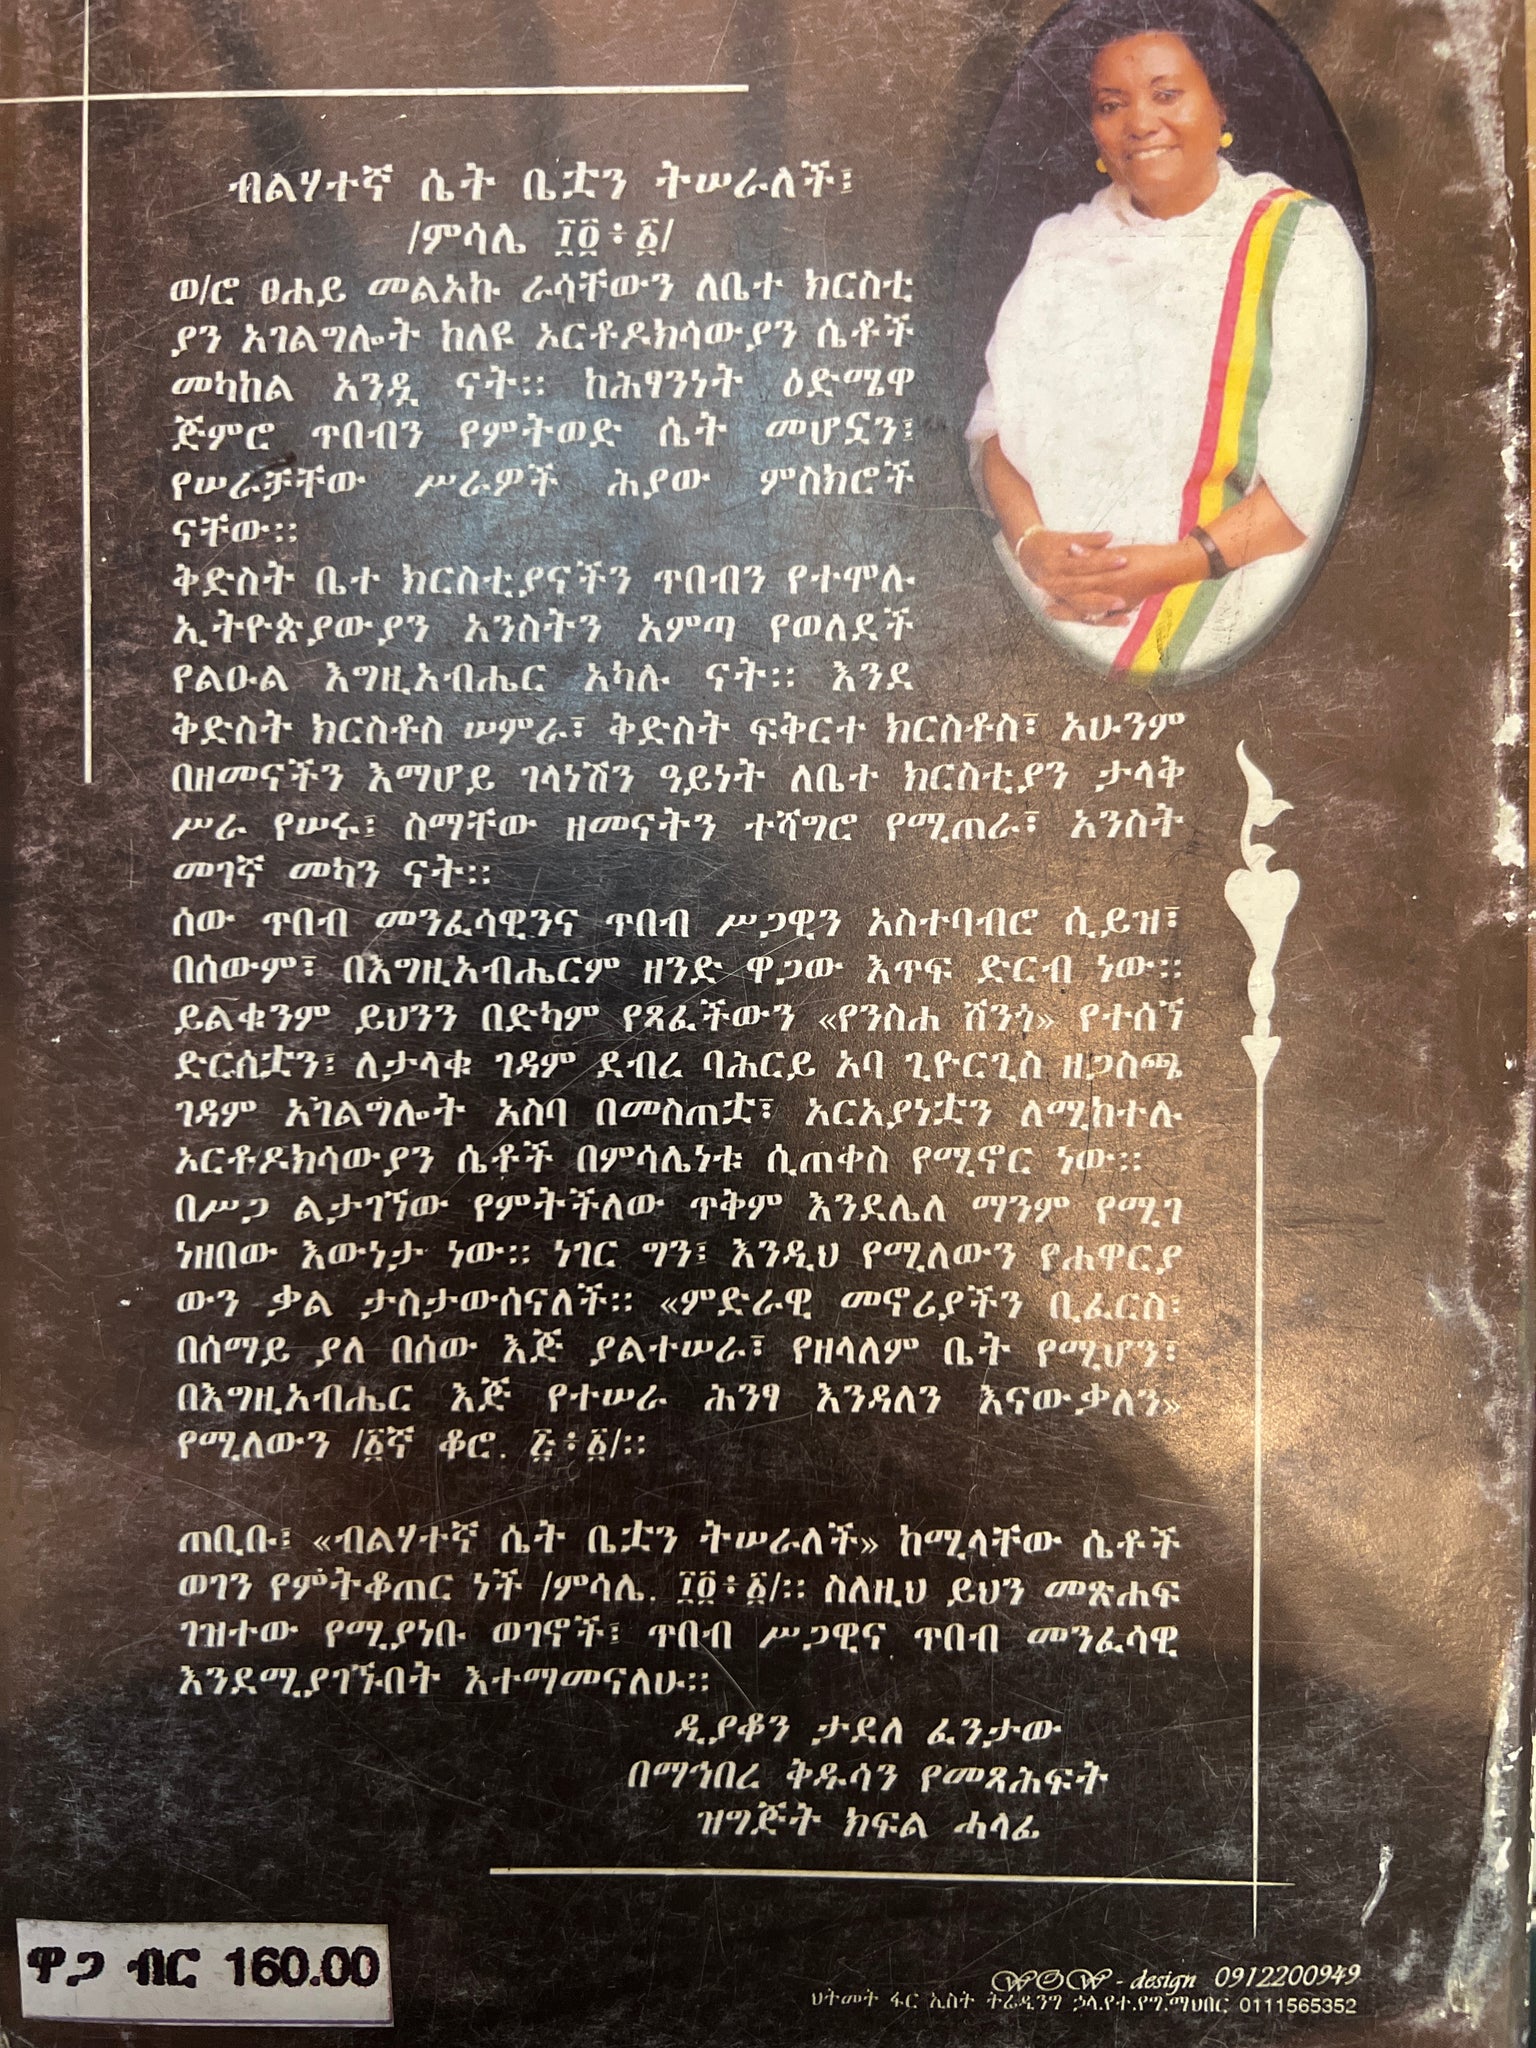 ብልሃተኛ ሴት ቤቷን ትሠራለች፤
/ምሳሌ ፲፬፥፩/
ወ/ሮ ፀሐይ መልአኩ ራሳቸውን ለቤተ ክርስቲ
ያን አገልግሎት ከለዩ ኦርቶዶክሳውያን ሴቶች
መካከል አንዷ ናት፡፡ ከሕፃንነት ዕድሜዋ
ጅምሮ ጥበብን የምትወድ ሴት መሆኗን፤
የሠራቻቸው ሥራዎች ሕያው ምስክሮች
ናቸው፡፡
ቅድስት ቤተ ክርስቲያናችን ጥበብን የተሞሉ
ኢትዮጵያውያን አንስትን አምጣ የወለደች
የልዑል እግዚአብሔር አካሉ ናት፡፡ እንደ
ቅድስት ክርስቶስ ሠምራ፣ ቅድስት ፍቅርተ ክርስቶስ፣ አሁንም
በዘመናችን እማሆይ ገላነሽን ዓይነት ለቤተ ክርስቲያን ታላቅ
ሥራ የሠሩ፤ ስማቸው ዘመናትን ተሻግሮ የሚጠራ፣ አንስት
መገኛ መካን ናት፡፡
ሰው ጥበብ መንፈሳዊንና ጥበብ ሥጋዊን አስተባብሮ ሲይዝ፣
በሰውም፣ በእግዚአብሔርም ዘንድ ዋጋው እጥፍ ድርብ ነው፡፡
ይልቁንም ይህንን በድካም የጻፈችውን «የንስሐ ሸንጎ» የተሰኘ
ድርሰቷን፤ ለታላቁ ገዳም ደብረ ባሕርይ አባ ጊዮርጊስ ዘጋስጫ
ገዳም አገልግሎት አስባ በመስጠቷ፣ አርአያነቷን ለሚከተሉ
ኦርቶዶክሳውያን ሴቶች በምሳሌነቱ ሲጠቀስ የሚኖር ነው፡፡
በሥጋ ልታገኘው የምትችለው ጥቅም እንደሌለ ማንም የሚገ
ነዘበው እውነታ ነው፡፡ ነገር ግን፤ እንዲህ የሚለውን የሐዋርያ
ውን ቃል ታስታውሰናለች፡፡ «ምድራዊ መኖሪያችን ቢፈርስ፤
በሰማይ ያለ በሰው እጅ ያልተሠራ፣ የዘላለም ቤት የሚሆን፣
በእግዚአብሔር እጅ የተሠራ ሕንፃ እንዳለን እናውቃለን»
የሚለውን /፩ኛ ቆሮ. ፭፥፩/፡፡
ጠቢቡ፤ «ብልሃተኛ ሴት ቤቷን ትሠራለች» ከሚላቸው ሴቶች
ወገን የምትቆጠር ነች /ምሳሌ. ፲፬፥፩/፡፡ ስለዚህ ይህን መጽሐፍ
ገዝተው የሚያነቡ ወገኖች፤ ጥበብ ሥጋዊና ጥበብ መንፈሳዊ
እንደሚያገኙበት እተማመናለሁ፡፡
ዲያቆን ታደለ ፈንታው
በማኅበረ ቅዱሳን የመጻሕፍት
ዝግጅት ክፍል ሓላፊ
ዋጋ ብር 160.00
WOW - design 0912200949
ህትመት ፋር ኢስት ትሬዲንግ ኃላ.የተ.የግ.ማህበር 0111565352